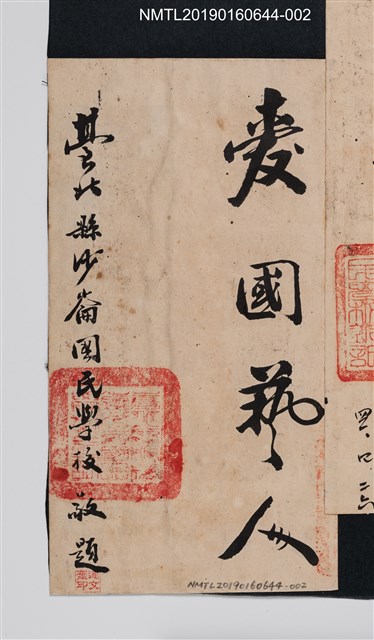 NMTL20190160644-002
愛國藝人
臺北縣沙崙國民學校敬題
NMTL20190160644-002